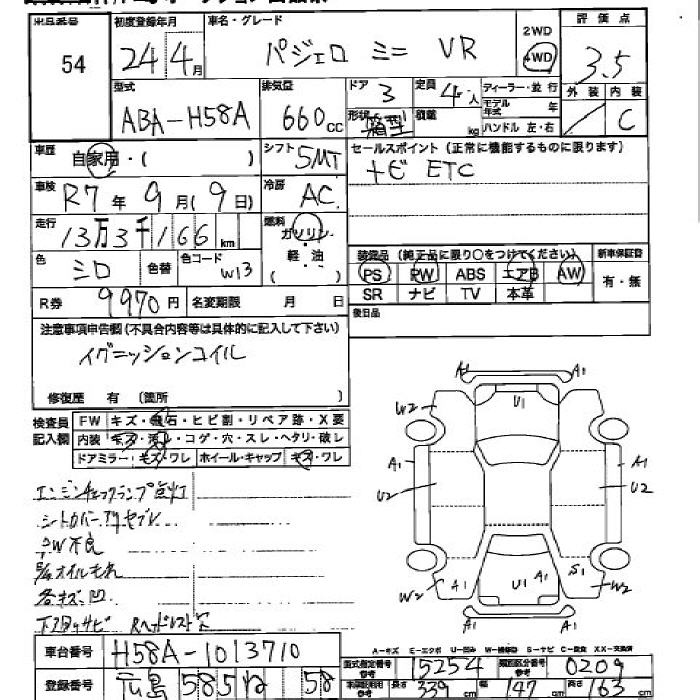 出品番号 54
初度登録年月 24年4月
車名・グレード パジェロ ミニ VR
2WD
4WD
評価点 3.5
外装 内装 C
型式 ABA-H58A
排気量 660 CC
ドア 3
形状 箱型
定員 4人
積載 kg
ディーラー・並行
モデル年式 年
ハンドル 左・右
車歴 自家用・( )
シフト 5MT
セールスポイント(正常に機能するものに限ります)
ナビ ETC
車検 R7年9月(9日)
冷房 AC
走行 13万3千166km
燃料 ガソリン・軽・油 ( )
色 シロ 色替 色コード W13
装備品(純正品に限り○をつけてください) 新車保証書
PS PW ABS エアB AW 有・無
SR ナビ TV 本革
R券 9970円 名変期限 月 日
後日品
注意事項申告欄(不具合内容等は具体的に記入して下さい)
イグニッションコイル
修復歴 有(箇所 )
検査員記入欄
FW キズ・飛石・ヒビ割・リペア跡・X要
内装 キズ・汚レ・コゲ・穴・スレ・ヘタリ・破レ
ドアミラー・キズ・ワレ ホイール・キャップ キズ・ワレ
エンジンチェックランプ点灯
シートカバー
PW不良
オイルもれ
各キズ凹
下廻サビ
A1 A1
W2 U1 W2
A1 A1
U2 U2
W2 A1 U1 A1 S1 W2
A1 A1
A-キズ E-エクボ U-凹み W-補修跡 S-サビ C-腐食 XX-交換済
車台番号 H58A-1013710
型式指定番号 参考 15254
類別区分番号 参考 0209
登録番号 広島 585 ね 58
長さ 339cm 幅 147cm 高さ 163cm